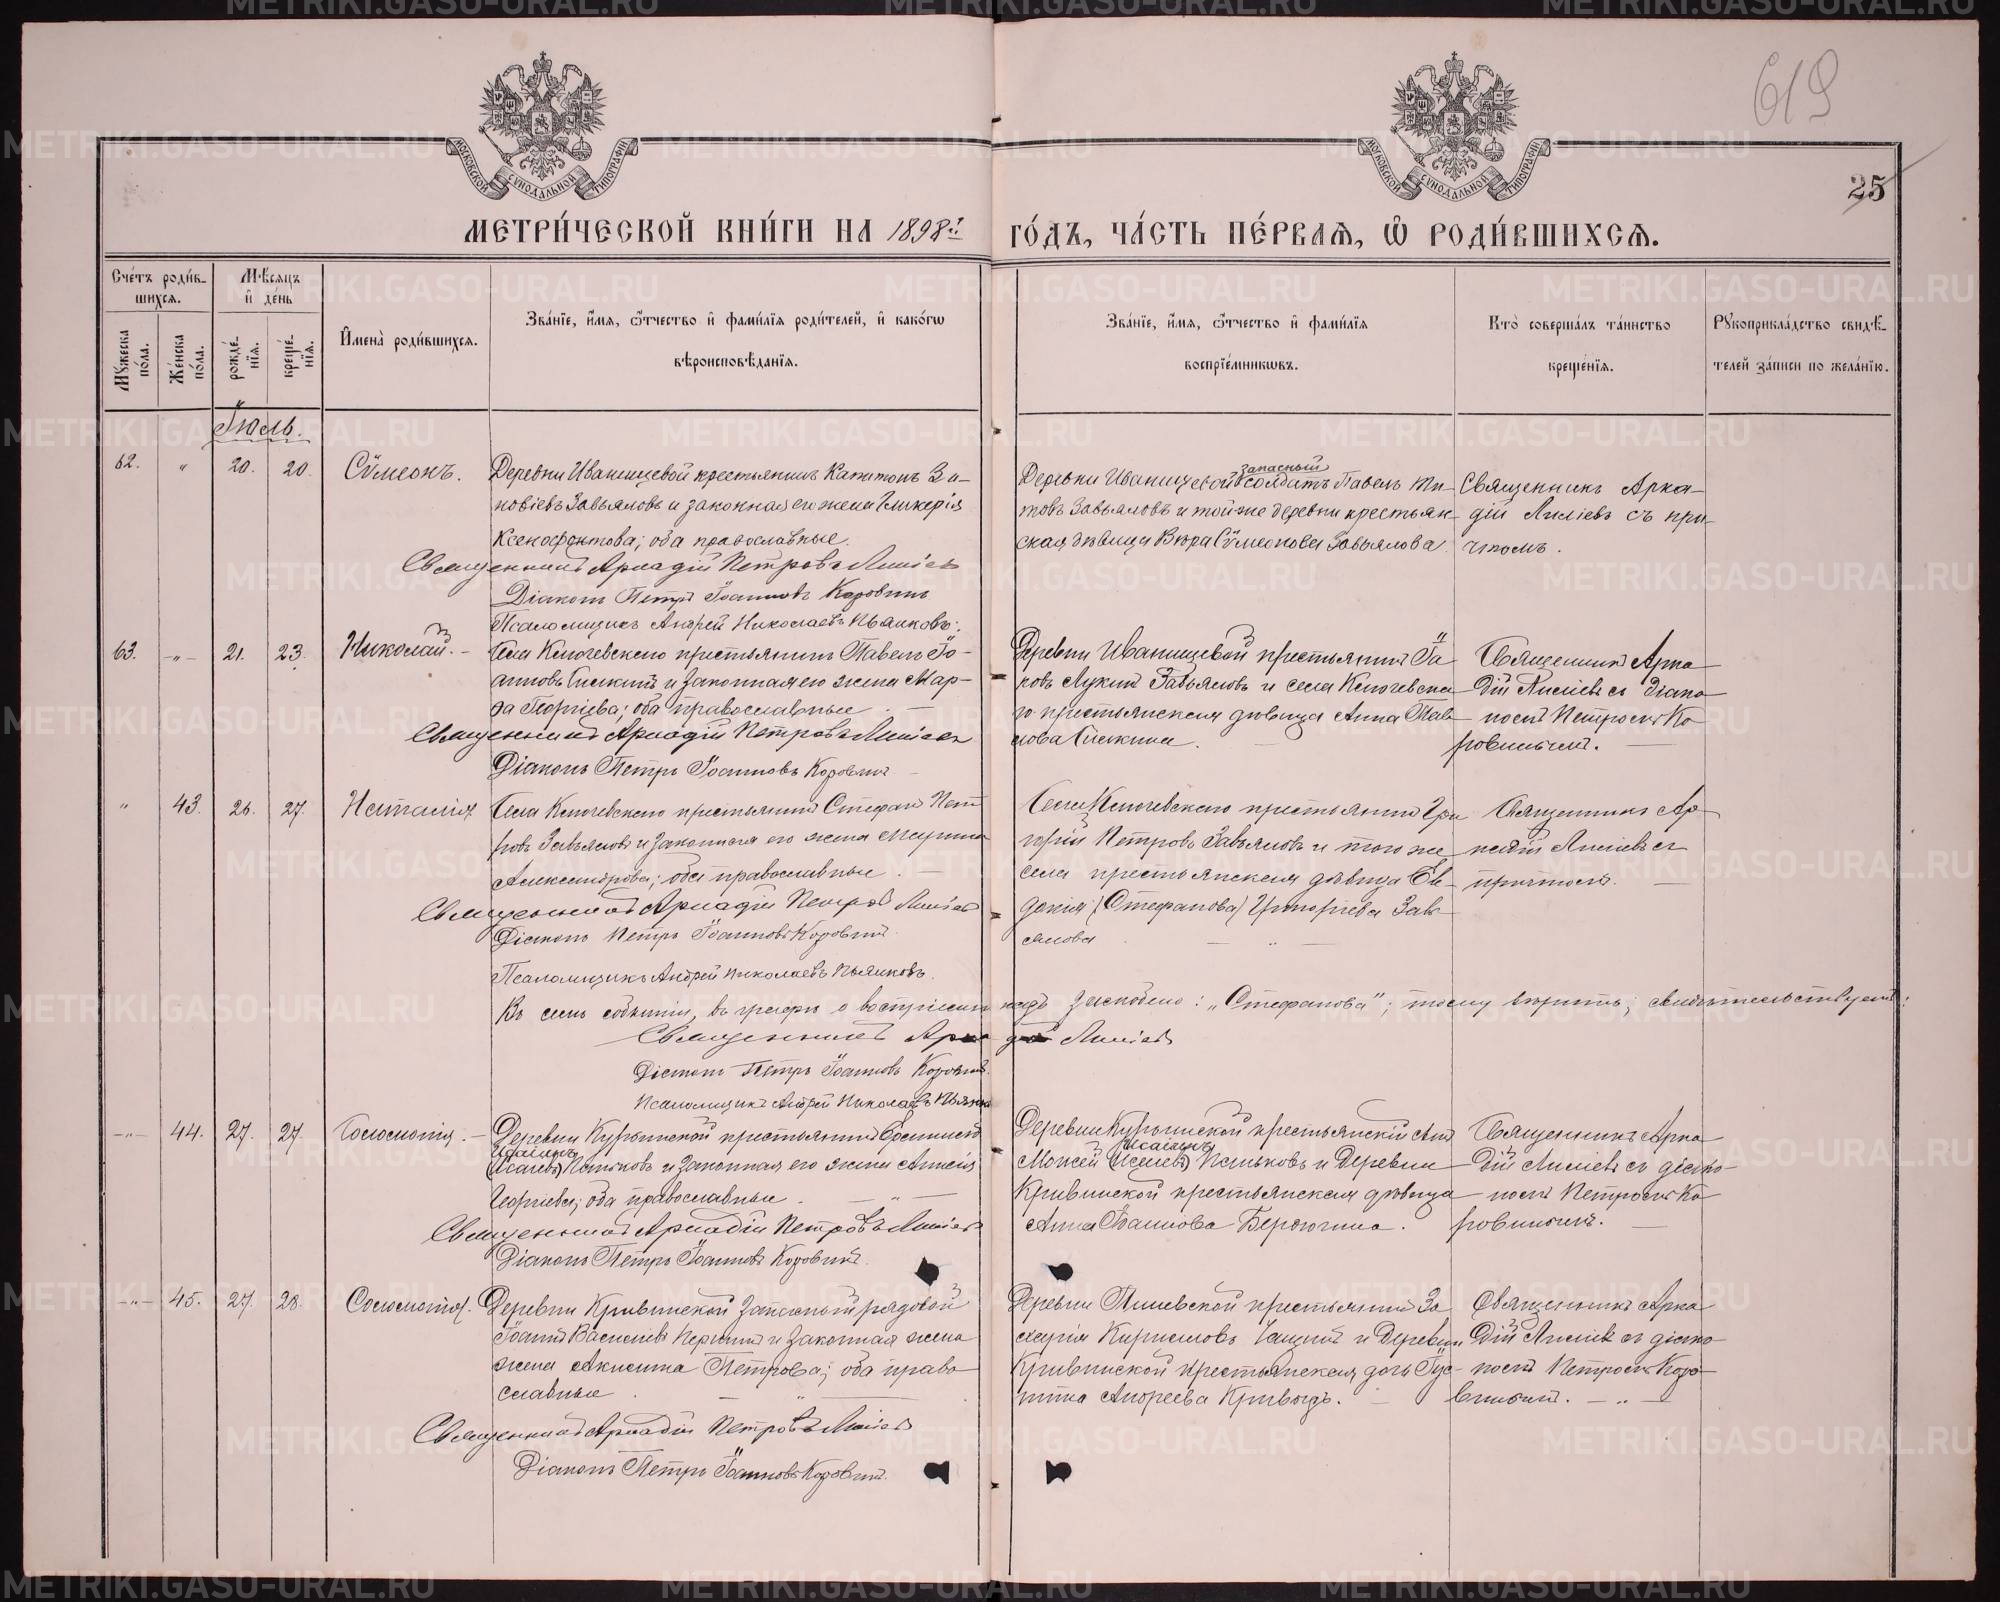 619
25
МОСКОВСКОЙ СѴНОДАЛЬНОЙ ТИПОГРАФІИ
МОСКОВСКОЙ СѴНОДАЛЬНОЙ ТИПОГРАФІИ
МЕТРИ́ЧЕСКОЙ КНИ́ГИ НА 1898й ГО́ДЪ, ЧА́СТЬ ПЕ́РВАЯ, Ѡ РОДИ́ВШИХСЯ.
Сче́тъ роди́в-
шихся.
Мѣ́сяцъ
и де́нь
Му́жеска
по́ла.
Же́нска
по́ла.
рожде́-
нія.
креще́-
нія.
Имена̀ роди́вшихся.
Зва́ніе, и́мя, ѻ́тчество и фами́лія роди́телей, и како́гѡ
вѣроисповѣ́данія.
Зва́ніе, и́мя, ѻ́тчество и фами́лія
воспріе́мникѡвъ.
Кто̀ соверша́лъ та́инство
креще́нія.
Рꙋкоприкла́дство свидѣ́-
телей за́писи по жела́нію.
Іюль.
62. " 20. 20. Сѵмеонъ.
Деревни Иванищевой крестьянинъ Капитонъ Зи-
новіевъ Завьяловъ и законная его жена Гликерія
Ксенофонтова; оба православные.
Священникъ Аркадій Петровъ
Діаконъ Петръ Іоанновъ Коровинъ
Псаломщикъ Андрей Николаевъ Пьянковъ.
Деревни Иванищевой запасный солдатъ Павелъ Ти-
товъ Завьяловъ и той же деревни крестьян-
ская дѣвица Вѣра Сѵмеонова Завьялова.
Священникъ Арка-
дій съ при-
чтомъ.
63. -"- 21. 23. Николай.
Села Ключевскаго крестьянинъ Павелъ Іо-
анновъ и законная его жена Мар-
ѳа Георгіева; оба православные.
Священникъ Аркадій Петровъ
Діаконъ Петръ Іоанновъ Коровинъ
Деревни Иванищевой крестьянинъ Іа-
ковъ Лукинъ Завьяловъ и села Ключевска-
го крестьянская дѣвица Анна Пав-
лова
Священникъ Арка-
дій съ діако-
номъ Петромъ Ко-
ровинымъ.
" 43. 26. 27. Наталія
Села Ключевскаго крестьянинъ Стефанъ Пет-
ровъ Завьяловъ и законная его жена Марина
Александрова; оба православные.
Священникъ Аркадій Петровъ
Діаконъ Петръ Іоанновъ Коровинъ.
Псаломщикъ Андрей Николаевъ Пьянковъ.
Села Ключевскаго крестьянинъ Гри-
горій Петровъ Завьяловъ и того же
села крестьянская дѣвица Ев-
докія (Стефанова) Григоріева Завь-
ялова
Священникъ Ар-
кадій съ
причтомъ.
Въ семъ событіи, въ графѣ о воспріемникахъ : „Стефанова“; тому вѣрить, свидѣтельствуемъ:
Священникъ Аркадій
Діаконъ Петръ Іоанновъ Коровинъ.
Псаломщикъ Андрей Николаевъ Пьянко
-"- 44. 27. 27. Соломонія.
Деревни крестьянинъ
(Исаевъ) Исаіинъ Паньковъ и законная его жена
Георгіева; оба православные.
Священникъ Аркадій Петровъ
Діаконъ Петръ Іоанновъ Коровинъ.
Деревни крестьянскій сынъ
Моисей (Исаевъ) Исаіинъ Паньковъ и деревни
Кривинской крестьянская дѣвица
Анна Іоаннова Берсенина.
Священникъ Арка-
дій съ діако-
номъ Петромъ Ко-
ровинымъ.
-"- 45. 27. 28. Соломонія.
Деревни Кривинской запасный рядовой
Іоаннъ Василіевъ и законная жена
жена Акилина Петрова; оба право-
славные
Священникъ Аркадій Петровъ
Діаконъ Петръ Іоанновъ Коровинъ.
Деревни крестьянинъ За-
харія Кирилловъ и деревни
Кривинской крестьянская дочь Іус-
тина Андреева Кривыхъ.
Священникъ Арка-
дій съ діако-
номъ Петромъ Коро-
винымъ. -"-
METRIKI.GASO-URAL.RU